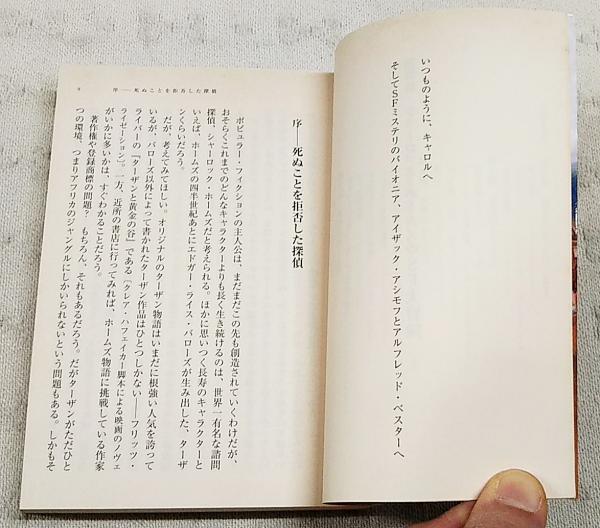 いつものように、キャロルへ
そしてSFミステリのパイオニア、アイザック・アシモフとアルフレッド・ベスターへ
序──死ぬことを拒否した探偵
ポピュラー・フィクションの主人公は、まだまだこの先も創造されていくわけだが、
おそらくこれまでのどんなキャラクターよりも長く生き続けるのは、世界一有名な諮問
探偵、シャーロック・ホームズだと考えられる。ほかに思いつく長寿のキャラクターと
いえば、ホームズの四半世紀あとにエドガー・ライス・バローズが生み出した、ターザ
ンくらいだろう。
だが、考えてみてほしい。オリジナルのターザン物語はいまだに根強い人気を誇って
いるが、バローズ以外によって書かれたターザン作品はひとつしかない──フリッツ・
ライバーの『ターザンと黄金の谷』である（クレア・ハフェイカー脚本による映画のノヴェ
ライゼーション）。一方、近所の書店に行ってみれば、ホームズ物語に挑戦している作家
がいかに多いかは、すぐわかることだろう。
著作権や登録商標の問題？　もちろん、それもあるだろう。だがターザンがただひと
つの環境、つまりアフリカのジャングルにしかいられないという問題もある。しかもそ
9　序──死ぬことを拒否した探偵